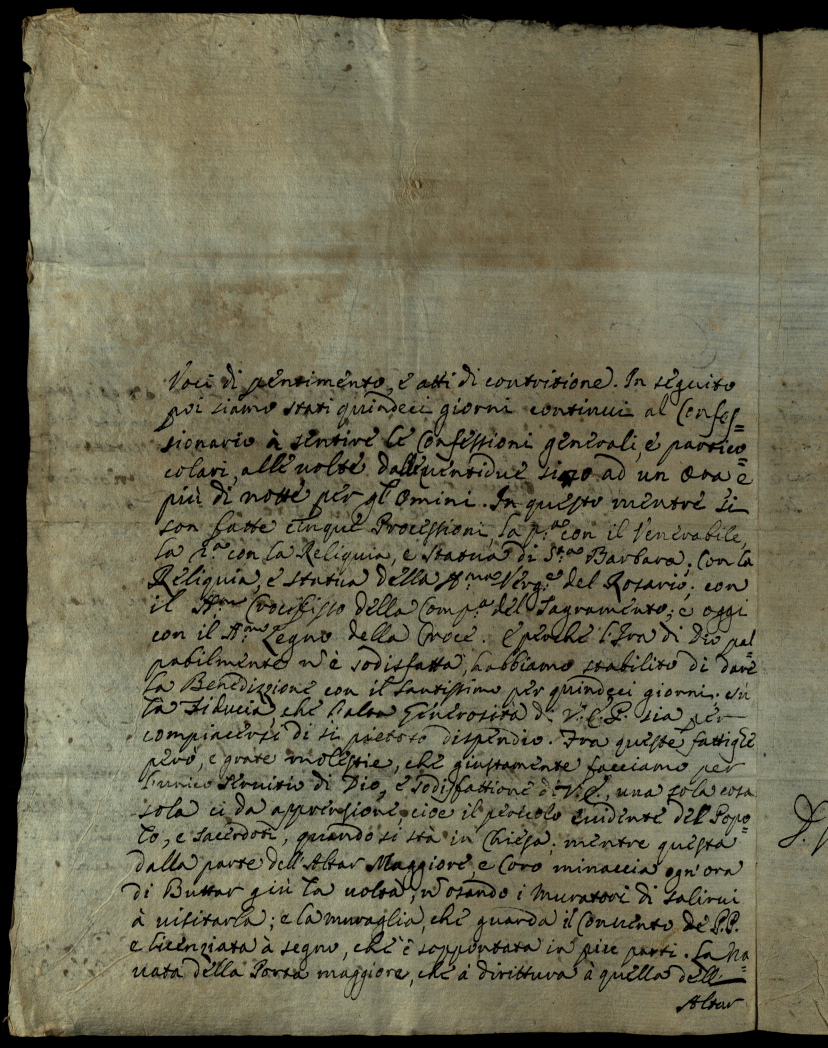 Voci di pentimento, è atti di contritione. In seguito
poi siamo stati quindeci giorni continui al Confes=
sionario à sentire le Confessioni generali, è partico=
colari, alle volte dalle ventidue sino ad un ora è
più di notte per gl'Omini. In questo mentre si
son fatte cinque Processioni, la p.ª con il Venerabile,
la 2.ª con la Reliquia, e Statua di S.ta Barbara. Con la
Reliquia, è statua della SS.ma Verg.e del Rosario; con
il SS.mo Crocifisso della Comp.a del Sagramento; e oggi
con il SS.mo Legno della Croce. E perche l'Ira di Dio pal=
pabilmente n'è sodisfatta, habbiamo stabilito di dare
la Benedizzione con il Santissimo per quindeci giorni. sù
la fiducia, che l'alta generosità di V.E.P. sia per
compiacersi di si pietoso dispendio. Fra queste fattighe
però, e grate molestie, che giustamente facciamo per
l'unico Servitio di Dio, è sodisfattione di V.E., una sola cosa
sola ci da apprensione, cioe il pericolo evidente del Popo=
lo, e Sacerdoti, quando si stà in Chiesa; mentre questa
dalla parte dell'Altar Maggiore, e Coro minaccia ogn'ora
di Buttar giù la volta, n'osando i Muratori di salirvi
à visitarla; e la muraglia, che guarda il Convento de P.P.
e licenziata à segno, che è soppontata in piu parti. La Na=
vata della Porta maggiore, che à dirittura à quella dell
Altar